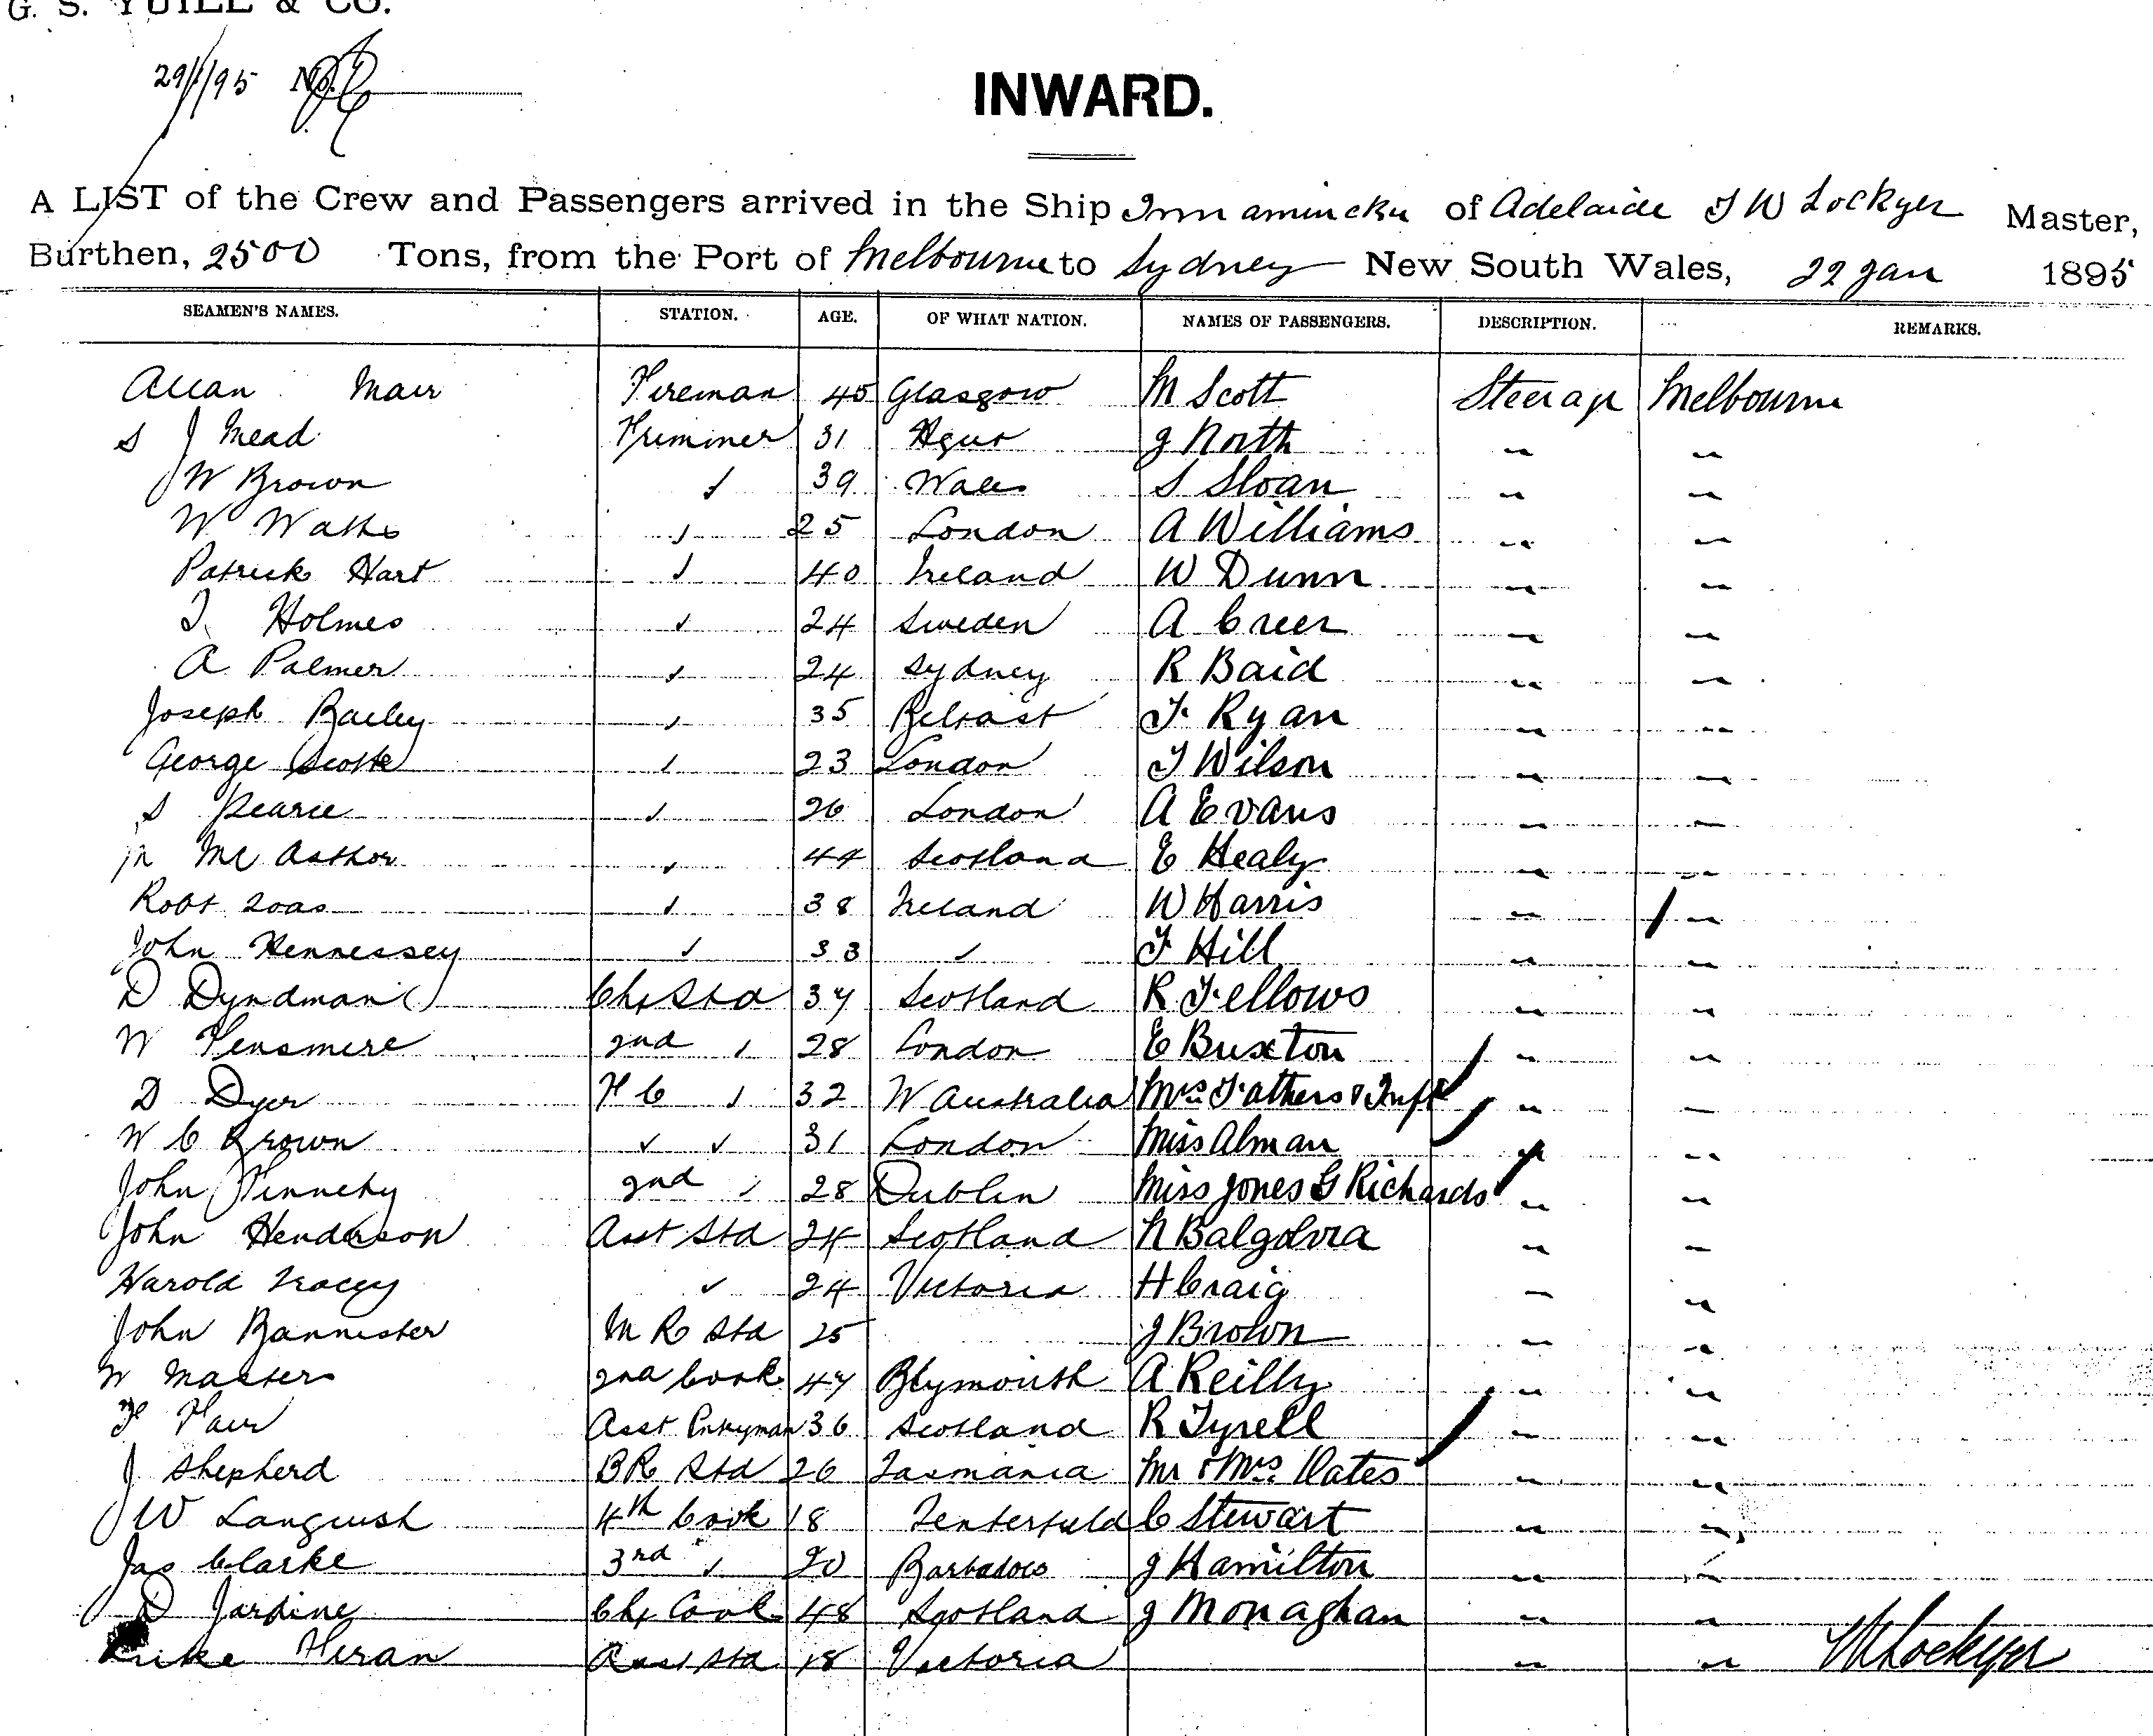 G. S. YUILL & CO.
29/1/95 No.
INWARD.
A LIST of the Crew and Passengers arrived in the Ship Innamincka of Adelaide J W Lockyer Master,
Burthen, 2500 Tons, from the Port of Melbourne to Sydney New South Wales, 22 Jan 1895
SEAMEN'S NAMES. STATION. AGE. OF WHAT NATION. NAMES OF PASSENGERS. DESCRIPTION. REMARKS.
Allan Mair Fireman 45 Glasgow M Scott Steerage Melbourne
S J Mead Trimmer 31 J North " "
W Brown " 39 Wales S Sloan " "
W Watts " 25 London A Williams " "
Patrick Hart " 40 Ireland W Dunn " "
T Holmes " 24 Sweden A Creer " "
A Palmer " 24 Sydney R Baid " "
Joseph Bailey " 35 Belfast F Ryan " "
George Scott " 23 London J Wilson " "
S Pearce " 26 London A Evans " "
Mc Arthor " 44 Scotland E Healy " "
Robt " 38 Ireland W Harris " "
John Hennessey " 33 " F Hill " "
D Dyndman Chf Std 37 Scotland R Fellows " "
W 2nd " 28 London E Buxton " "
D Dyer F C " 32 W Australia Mrs Fathers & Inft " "
W C Brown " " 31 London Miss Alman " "
John 2nd " 28 Dublin Miss Jones G Richards " "
John Henderson Asst Std 24 Scotland N Balgdvia " "
Harold Tracey " 24 Victoria H Craig " "
John Bannister M R Std 25 J Brown " "
W Masters 2nd Cook 47 Plymouth A Reilly " "
F Asst Pntryman 36 Scotland R Tyrell " "
J Shepherd B R Std 26 Tasmania Mr & Mrs Oates " "
J W Languish 4th Cook 18 Tenterfield C Stewart " "
Jas Clarke 3rd " 20 Barbadoes J Hamilton " "
D Jardine Chf Cook 48 Scotland J Monaghan " "
Luke Asst Std 18 Victoria " " Lockyer